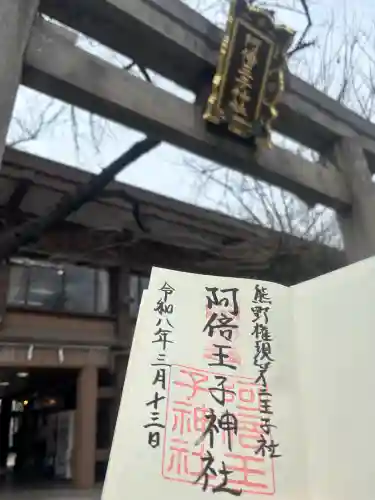 阿倍王子神社
熊野権現第二王子社
阿倍王子神社
阿倍王子神社
令和八年三月十三日